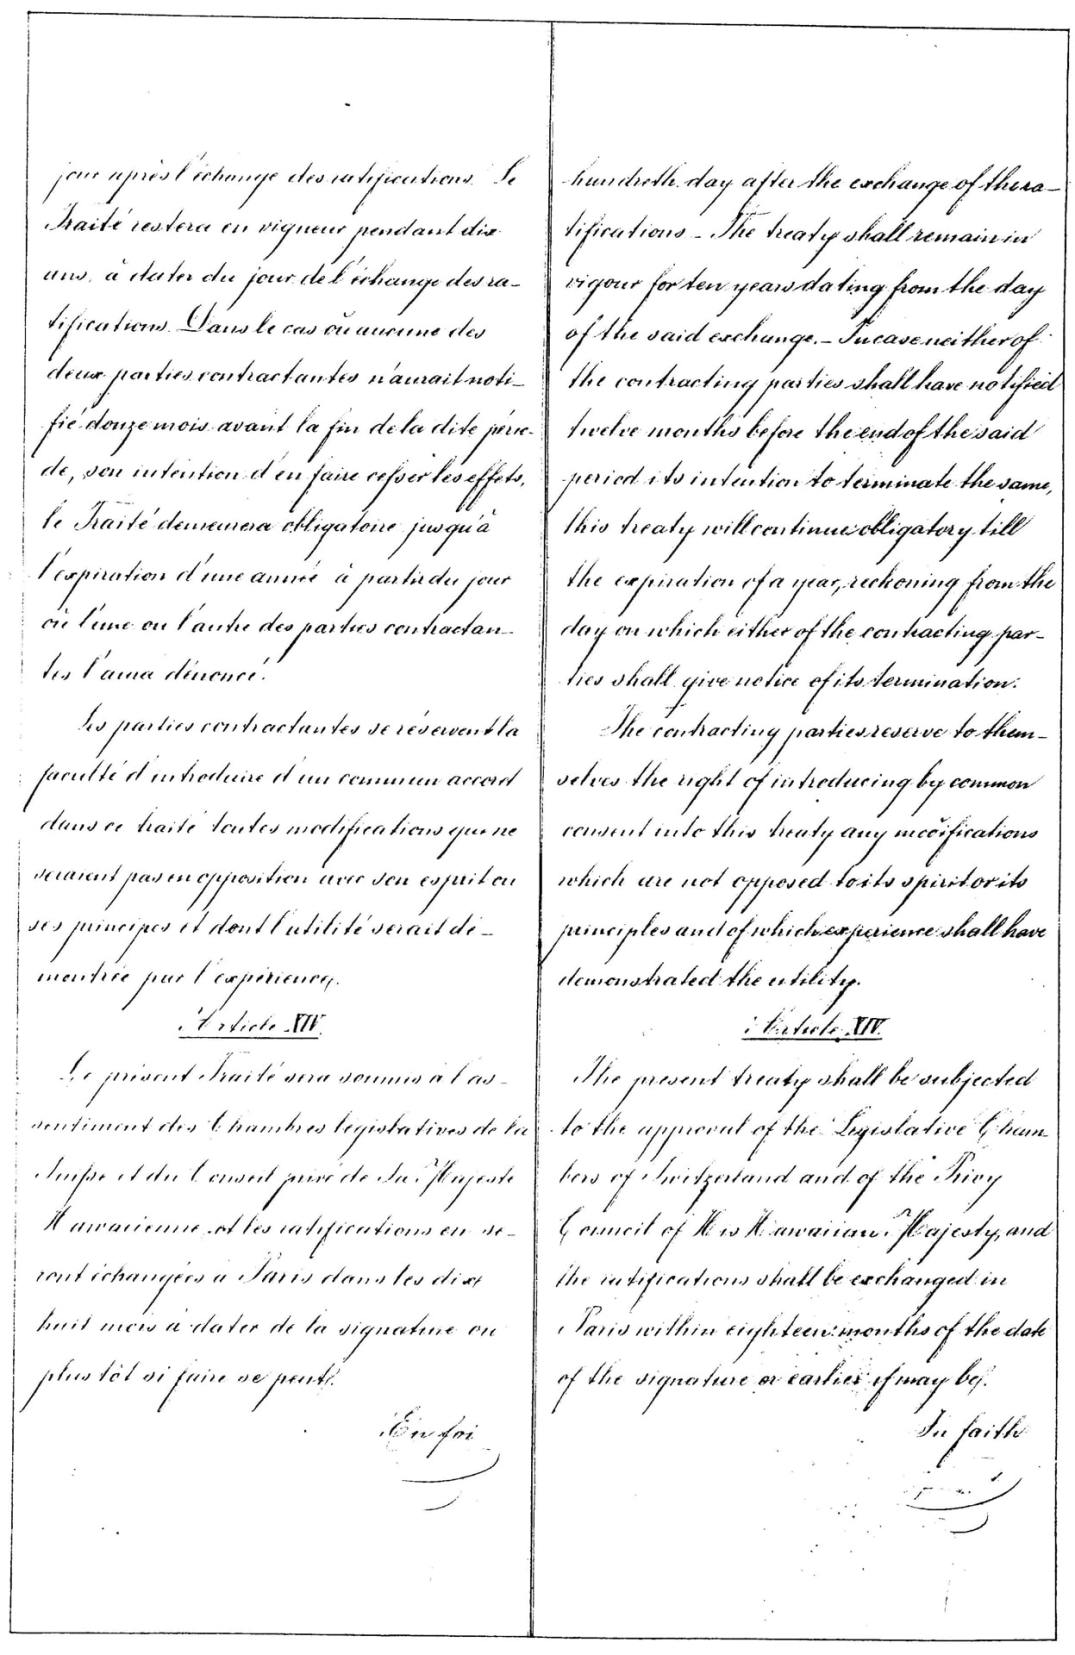 jour après l'échange des ratifications. Le
Traité restera en vigueur pendant dix
ans, à dater du jour de l'échange des ra-
tifications. Dans le cas où aucune des
deux parties contractantes n'aurait noti-
fié douze mois avant la fin de la dite pério-
de, son intention d'en faire cesser les effets,
le Traité demeurera obligatoire jusqu'à
l'expiration d'une année à partir du jour
où l'une ou l'autre des parties contractan-
tes l'aura dénoncé.
Les parties contractantes se réservent la
faculté d'introduire d'un commun accord
dans ce traité toutes modifications qui ne
seraient pas en opposition avec son esprit ou
ses principes et dont l'utilité serait dé-
montrée par l'expérience.
Article XIV.
Le présent Traité sera soumis à l'as-
sentiment des Chambres législatives de la
Suisse et du Conseil privé de Sa Majesté
Hawaiienne et les ratifications en se-
ront échangées à Paris dans les dix
huit mois à dater de la signature ou
plus tôt si faire se peut.
En foi
hundreth day after the exchange of the ra-
tifications - The treaty shall remain in
vigour for ten years dating from the day
of the said exchange. - In case neither of
the contracting parties shall have notified
twelve months before the end of the said
period its intention to terminate the same,
this treaty will continue obligatory till
the expiration of a year, reckoning from the
day on which either of the contracting par-
ties shall give notice of its termination.
The contracting parties reserve to them-
selves the right of introducing by common
consent into this treaty any modifications
which are not opposed to its spirit or its
principles and of which experience shall have
demonstrated the utility.
Article XIV.
The present treaty shall be subjected
to the approval of the Legislative Cham-
bers of Switzerland and of the Privy
Council of His Hawaiian Majesty, and
the ratifications shall be exchanged in
Paris within eighteen months of the date
of the signature or earlier if may be.
In faith